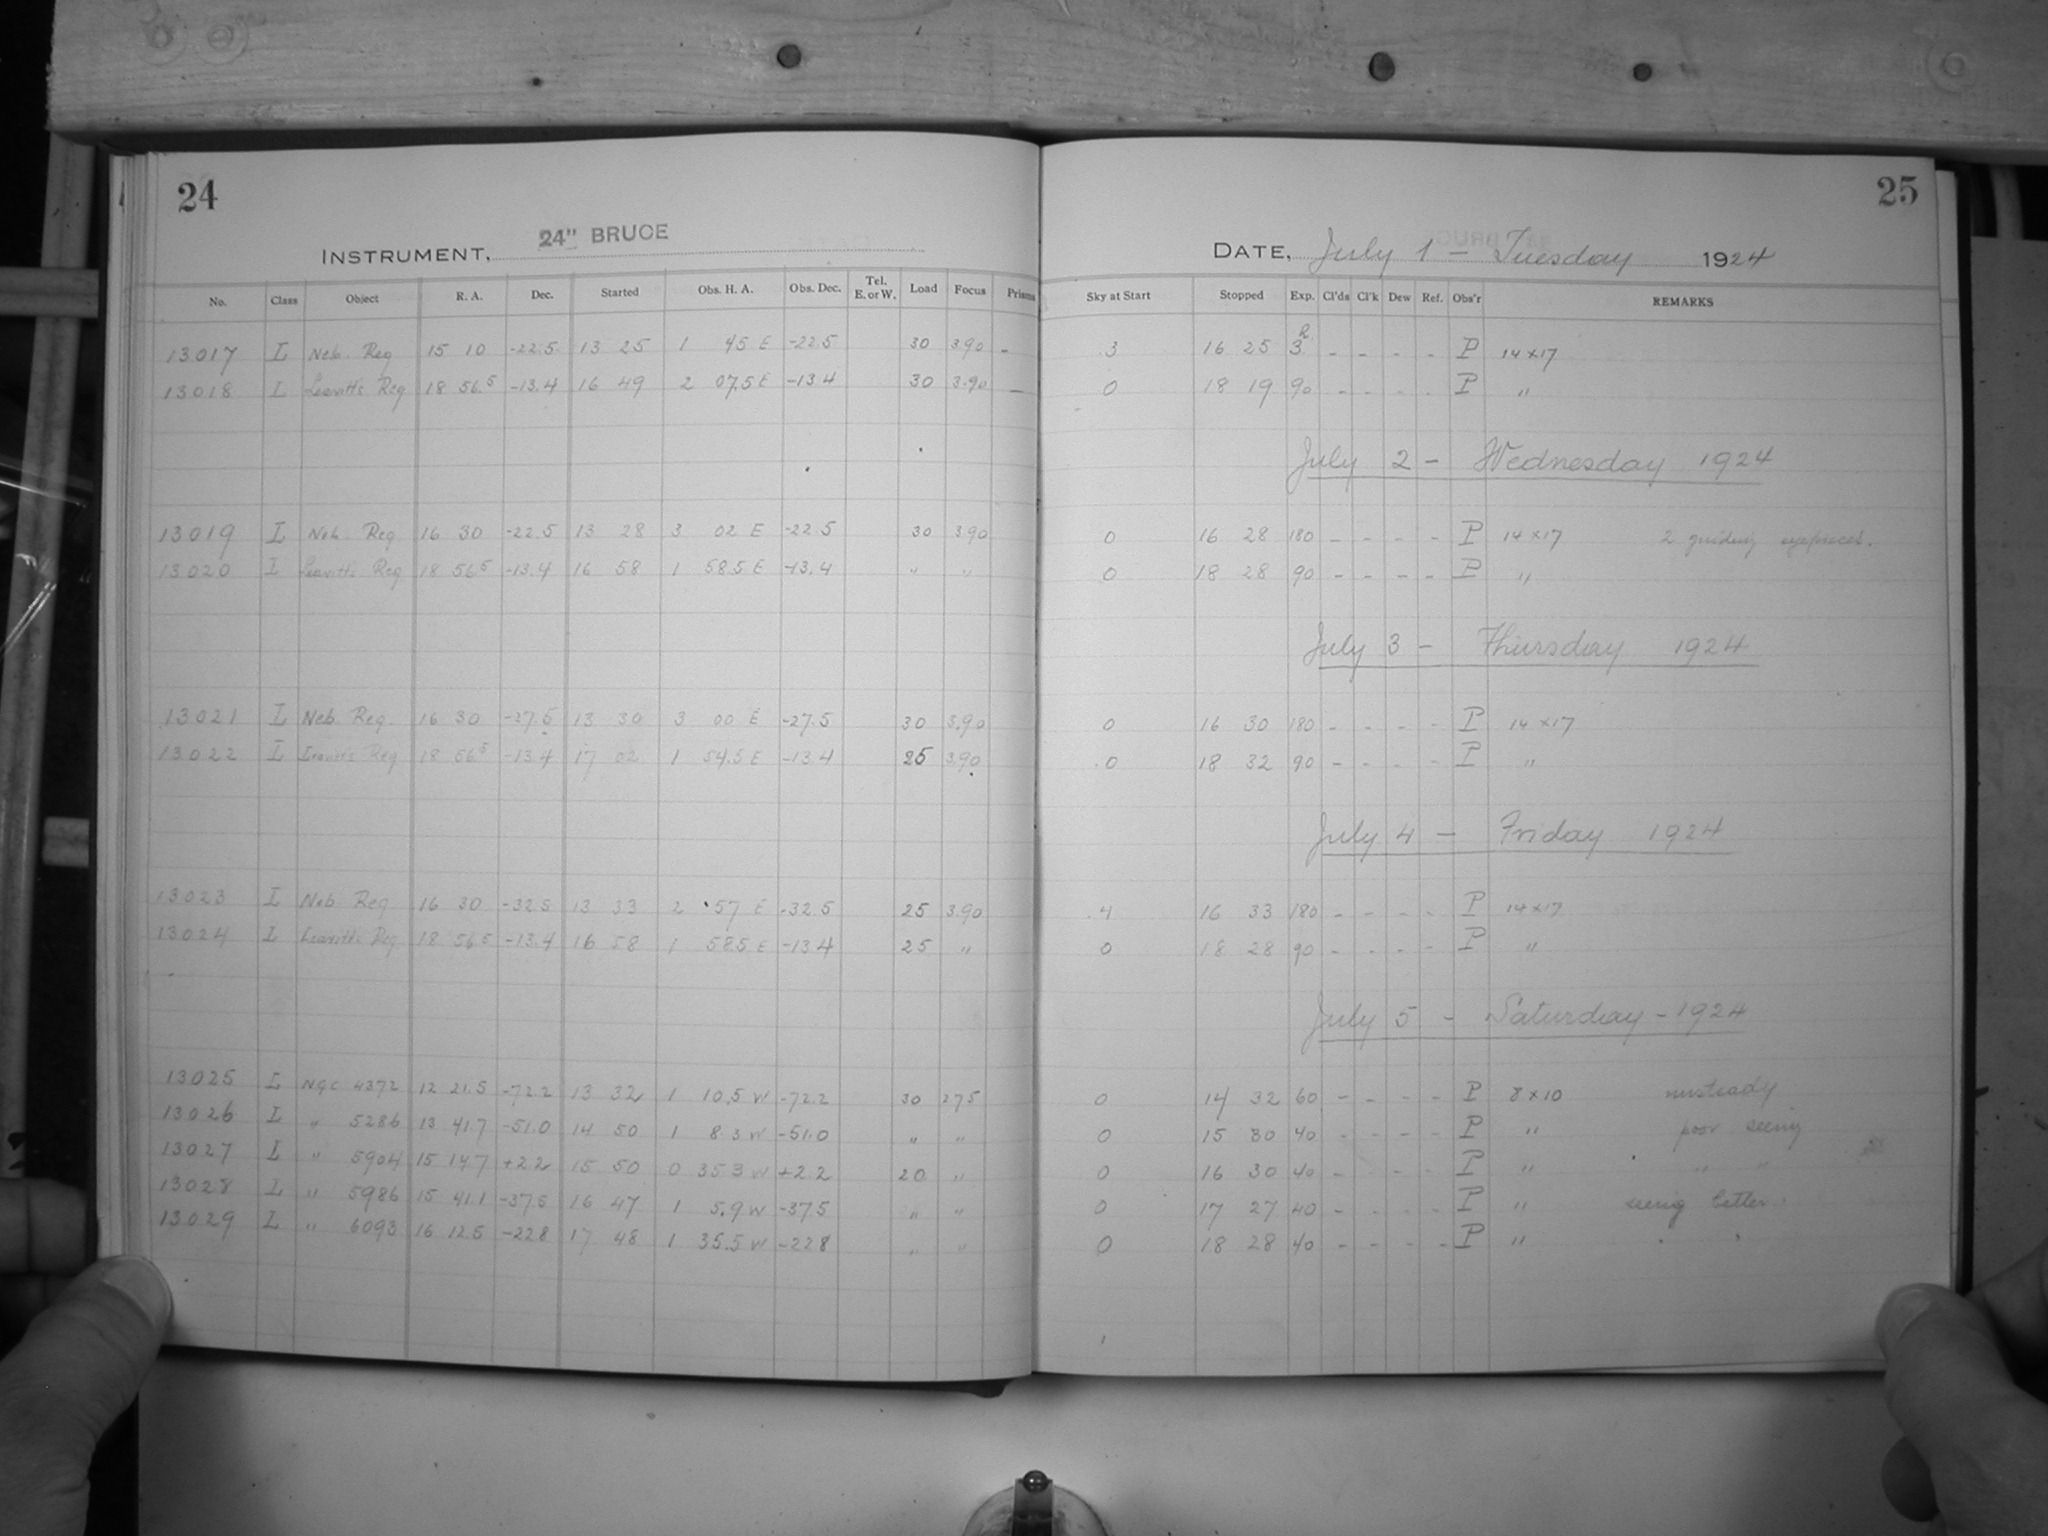 24
INSTRUMENT, 24" BRUCE
No. Class Object R. A. Dec. Started Obs. H. A. Obs. Dec. Tel. E. or W. Load Focus Prisms
13017 I Neb. Reg 15 10 -22.5 13 25 1 45 E -22.5 30 3.90 -
13018 I Leavitt's Reg 18 56.5 -13.4 16 49 2 07.5 E -13.4 30 3.90 -
13019 I Neb. Reg 16 30 -22.5 13 28 3 02 E -22.5 30 3.90
13020 I Leavitt's Reg 18 56.5 -13.4 16 58 1 58.5 E -13.4 " "
13021 I Neb. Reg 16 30 -27.5 13 30 3 00 E -27.5 30 3.90
13022 I Leavitt's Reg 18 56.5 -13.4 17 02 1 54.5 E -13.4 25 3.90
13023 I Neb. Reg 16 30 -32.5 13 33 2 57 E -32.5 25 3.90
13024 I Leavitt's Reg 18 56.5 -13.4 16 58 1 58.5 E -13.4 25 "
13025 I NGC 4372 12 21.5 -72.2 13 32 1 10.5 W -72.2 30 275
13026 I " 5286 13 41.7 -51.0 14 50 1 8.3 W -51.0 " "
13027 I " 5904 15 14.7 +2.2 15 50 0 35.3 W +2.2 20 "
13028 I " 5986 15 41.1 -37.5 16 47 1 5.9 W -37.5 " "
13029 I " 6093 16 12.5 -22.8 17 48 1 35.5 W -22.8 " "
25
DATE, July 1 - Tuesday 1924
Sky at Start Stopped Exp. Cl'ds Cl'k Dew Ref. Obs'r REMARKS
3 16 25 3h - - - - P 14 x 17
0 18 19 90 - - - - P "
July 2 - Wednesday 1924
0 16 28 180 - - - - P 14 x 17 2 guiding eyepieces.
0 18 28 90 - - - - P "
July 3 - Thursday 1924
0 16 30 180 - - - - P 14 x 17
0 18 32 90 - - - - P "
July 4 - Friday 1924
4 16 33 180 - - - - P 14 x 17
0 18 28 90 - - - - P "
July 5 - Saturday - 1924
0 14 32 60 - - - - P 8 x 10 unsteady
0 15 30 40 - - - - P " poor seeing
0 16 30 40 - - - - P " " "
0 17 27 40 - - - - P " seeing better.
0 18 28 40 - - - - P "